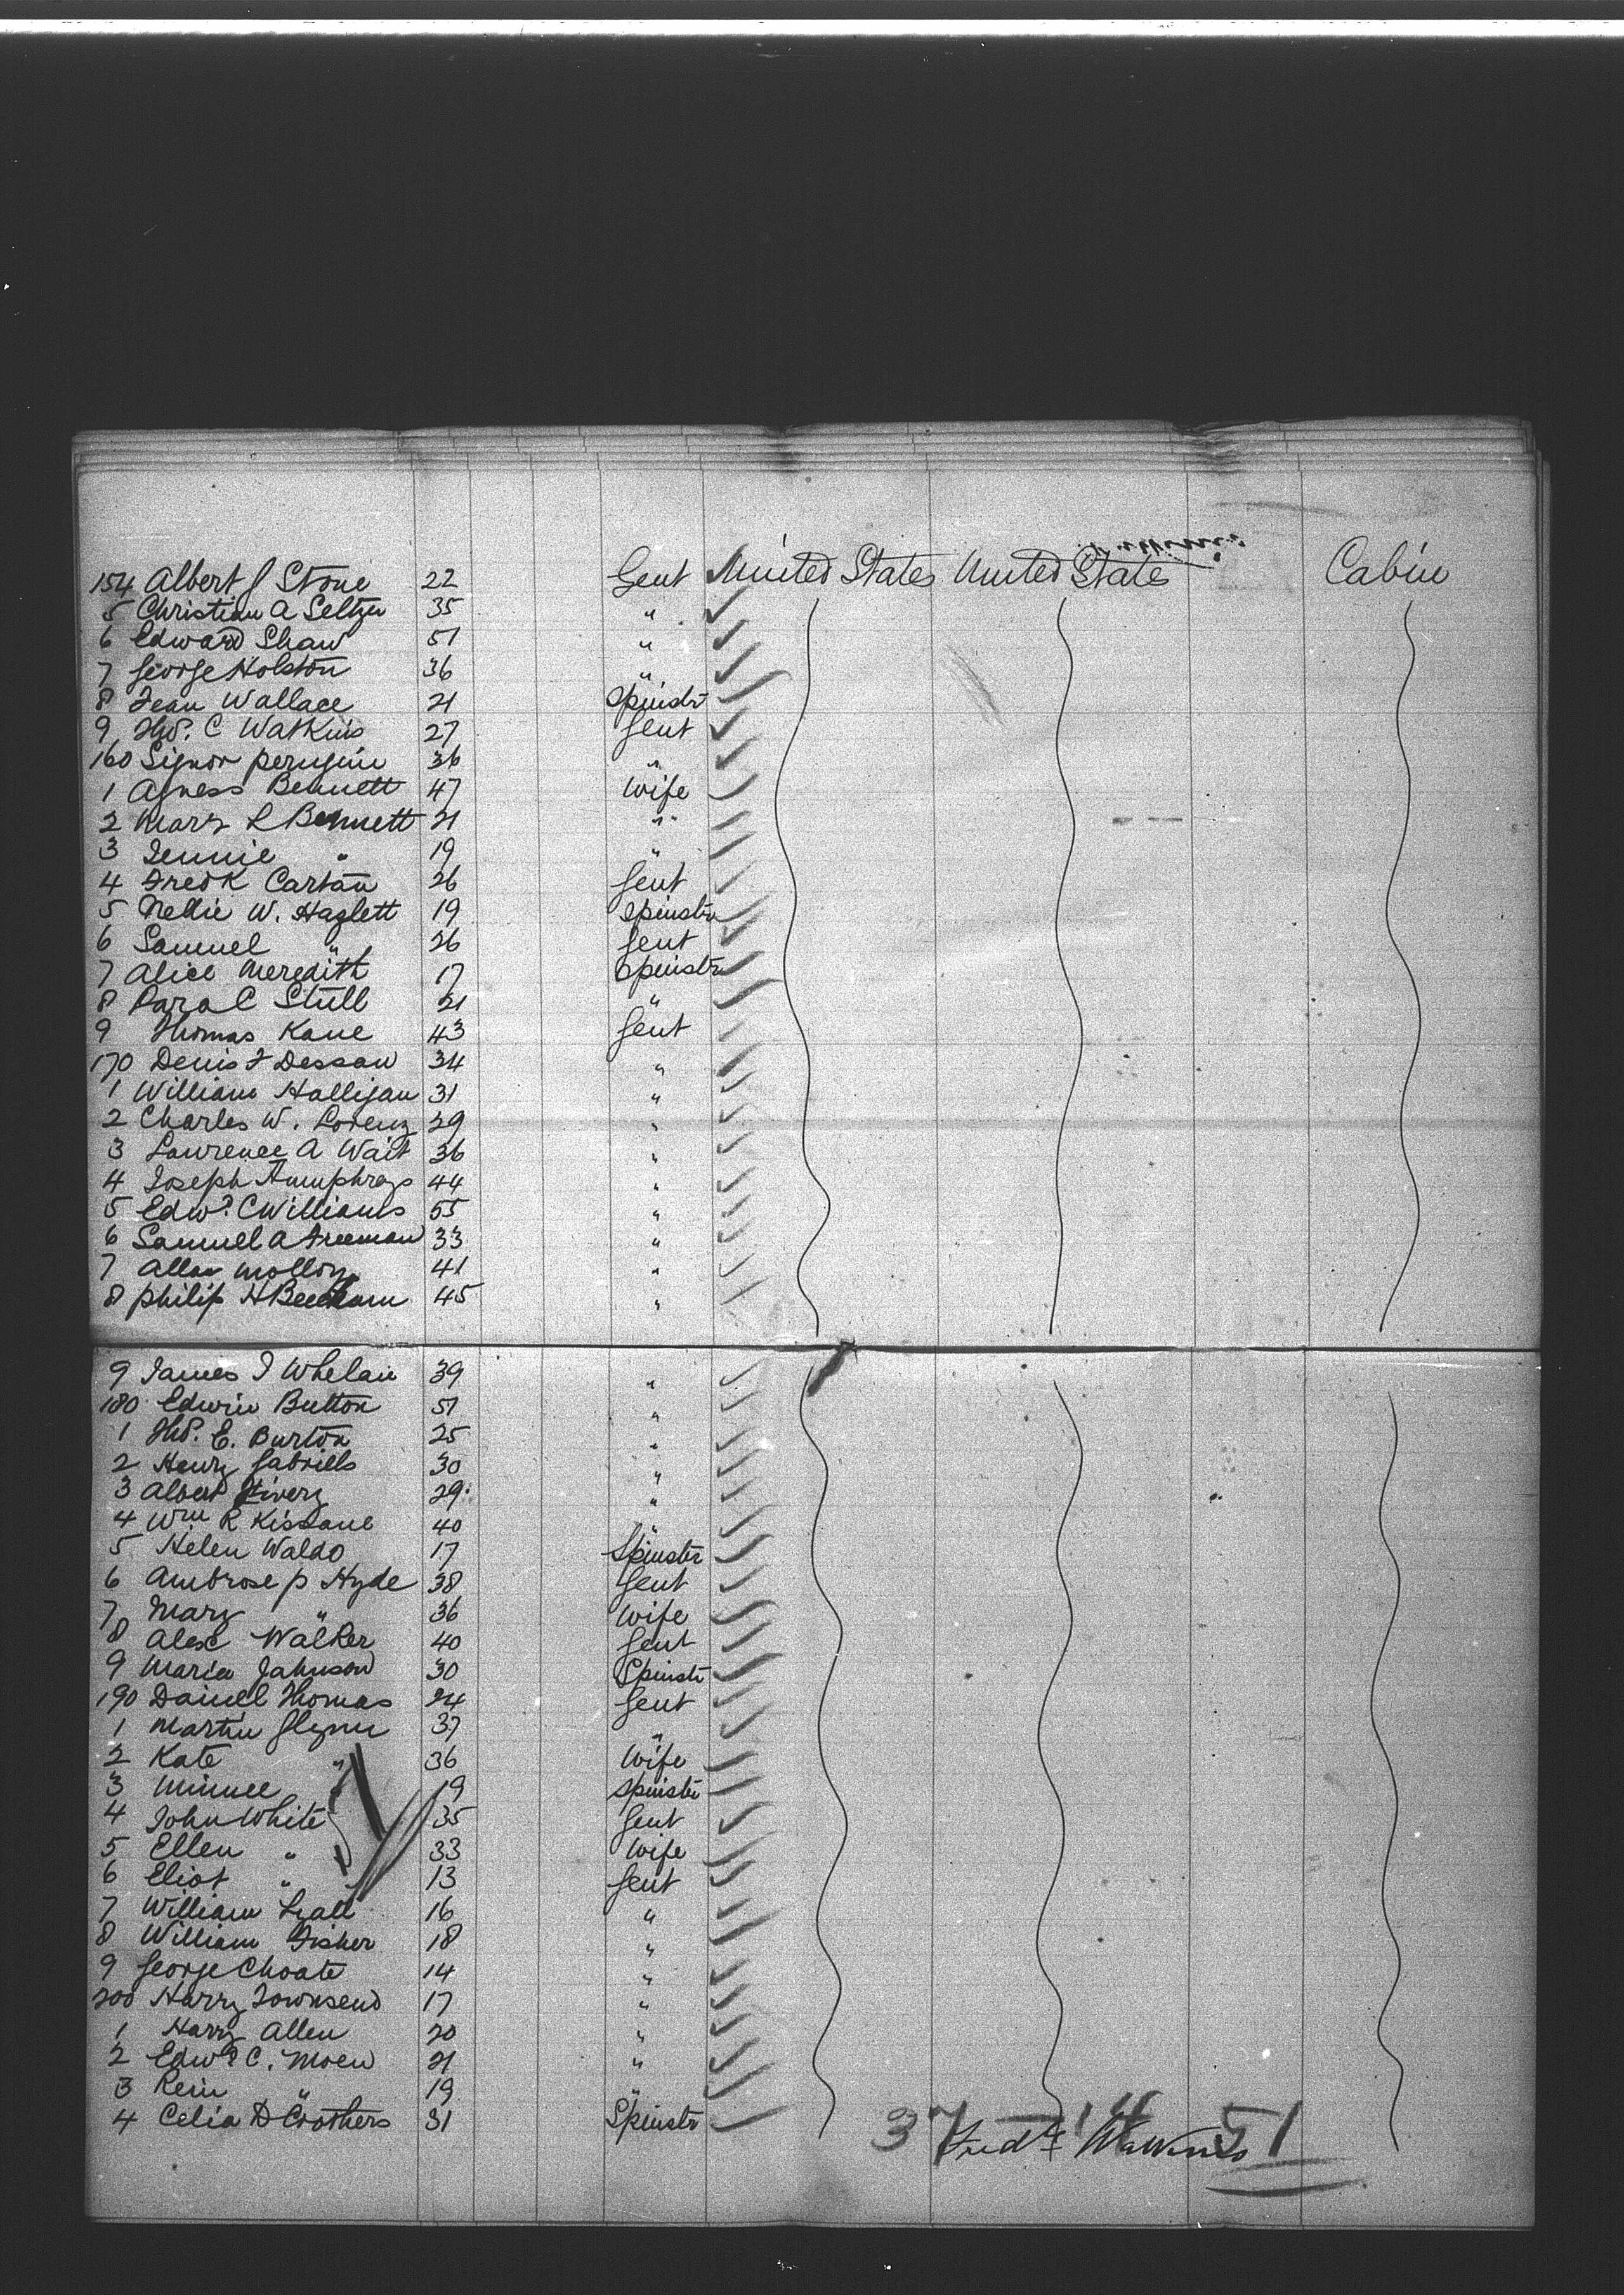 154 Albert J Stone 22 Gent United States United States Cabin
5 Christian A Seltzer 35 "
6 Edward Shaw 51 "
7 George Holston 36 "
8 Jean Wallace 21 Spinstr
9 Thos. C Watkins 27 Gent
160 Signor perugini 36 "
1 Agness Bennett 47 Wife
2 Mary L Bennett 21 "
3 Jennie " 19 "
4 Fredk Cartan 26 Gent
5 Nellie W. Hazlett 19 Spinstr
6 Samuel " 26 Gent
7 Alice Meredith 17 Spinstr
8 C Stull 21 "
9 Thomas Kane 43 Gent
170 Denis F Dessaw 34 "
1 William Hallijan 31 "
2 Charles W. Lorenz 29 "
3 Lawrence A Wait 36 "
4 Joseph Humphreys 44 "
5 Edwd. C Williams 55 "
6 Samuel A Freeman 33 "
7 Allan Molloy 41 "
8 Philip H Beecham 45 "
9 James J Whelan 39 "
180 Edwin Button 51 "
1 Thos. E. Burton 25 "
2 Henry Gabriells 30 "
3 Albert 29 "
4 Wm R Kissane 40 "
5 Helen Waldo 17 Spinstr
6 Ambrose p Hyde 38 Gent
7 Mary " 36 Wife
8 Alex Walker 40 Gent
9 Maria Johnson 30 Spinstr
190 Daniel Thomas 24 Gent
1 Martin Glynn 37 "
2 Kate " 36 Wife
3 Minnee 19 Spinstr
4 John White 35 Gent
5 Ellen " 33 Wife
6 Eliot " 13 Gent
7 William Lyall 16 "
8 William Fisher 18 "
9 George Choate 14 "
200 Harry Townsend 17 "
1 Harry Allen 20 "
2 Edwd C. Moen 21 "
3 Rein " 19 "
4 Celia D Crothers 31 Spinstr
37 14 51
Fredk Watkins